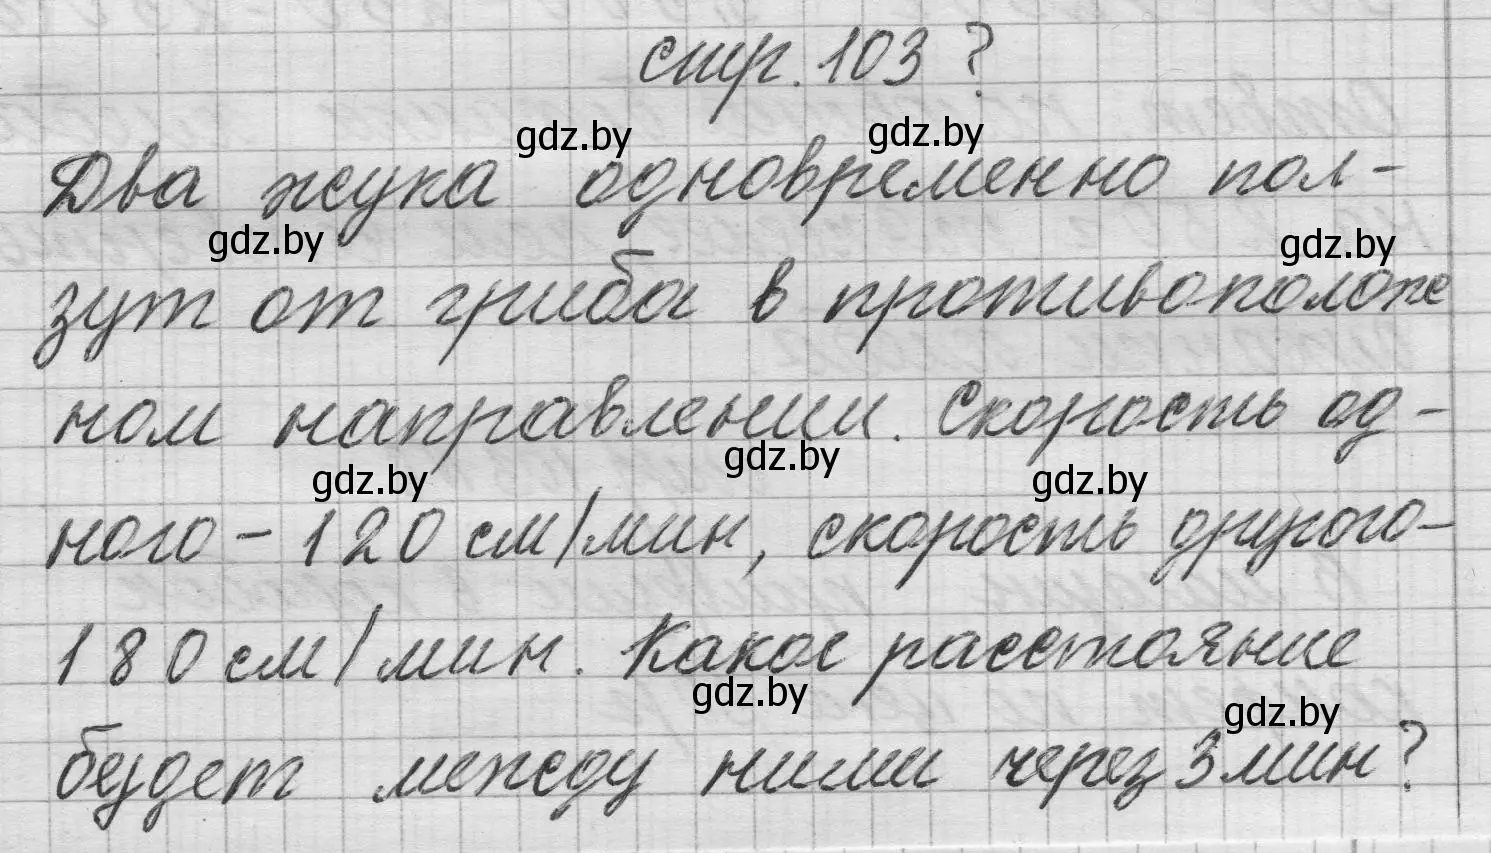 стр. 103 ?
gdz.by gdz.by
Два жука одновременно пол-
gdz.by gdz.by
зут от гриба в противополож
ном направлении. Скорость од-
gdz.by gdz.by gdz.by
ного - 120 см/мин, скорость другого-
180 см/мин. Какое расстояние
gdz.by gdz.by
будет между ними через 3 мин?